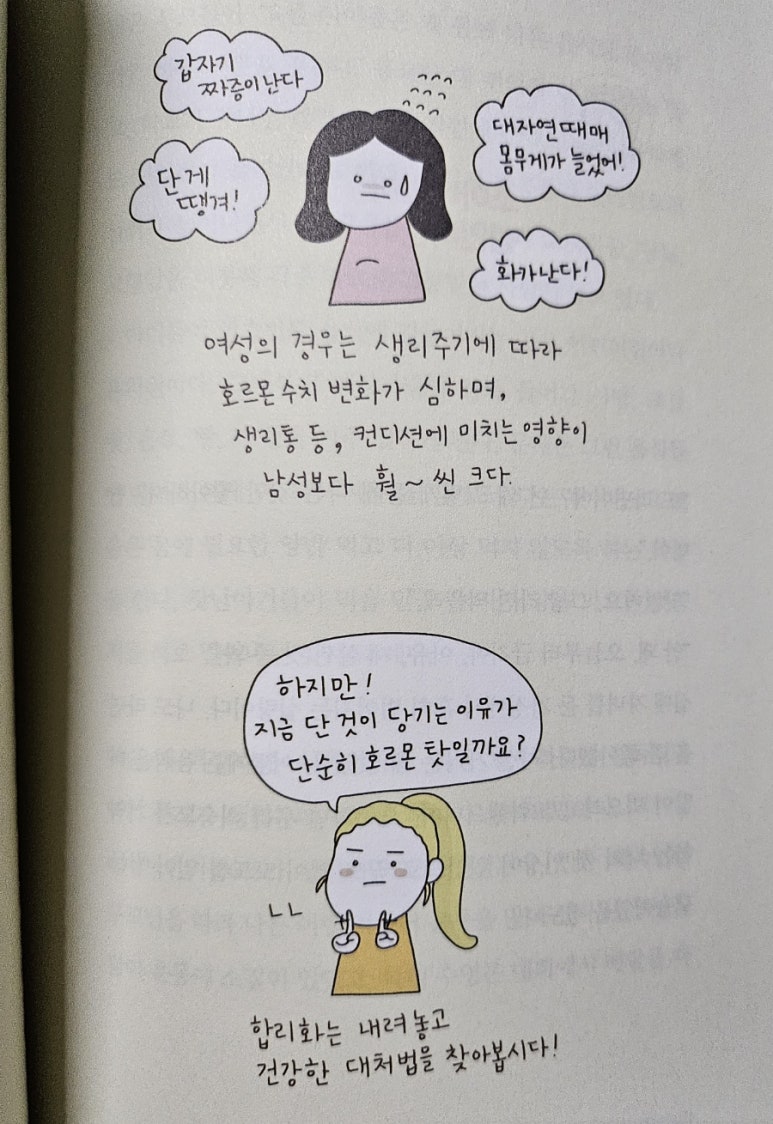 갑자기
짜증이 난다
대자연 때매
몸무게가 늘었어!
단게
땡겨!
화가 난다!
여성의 경우는 생리주기에 따라
호르몬 수치 변화가 심하며,
생리통 등, 컨디션에 미치는 영향이
남성보다 훨~씬 크다.
하지만!
지금 단 것이 당기는 이유가
단순히 호르몬 탓일까요?
ㄴㄴ
합리화는 내려놓고
건강한 대처법을 찾아봅시다!